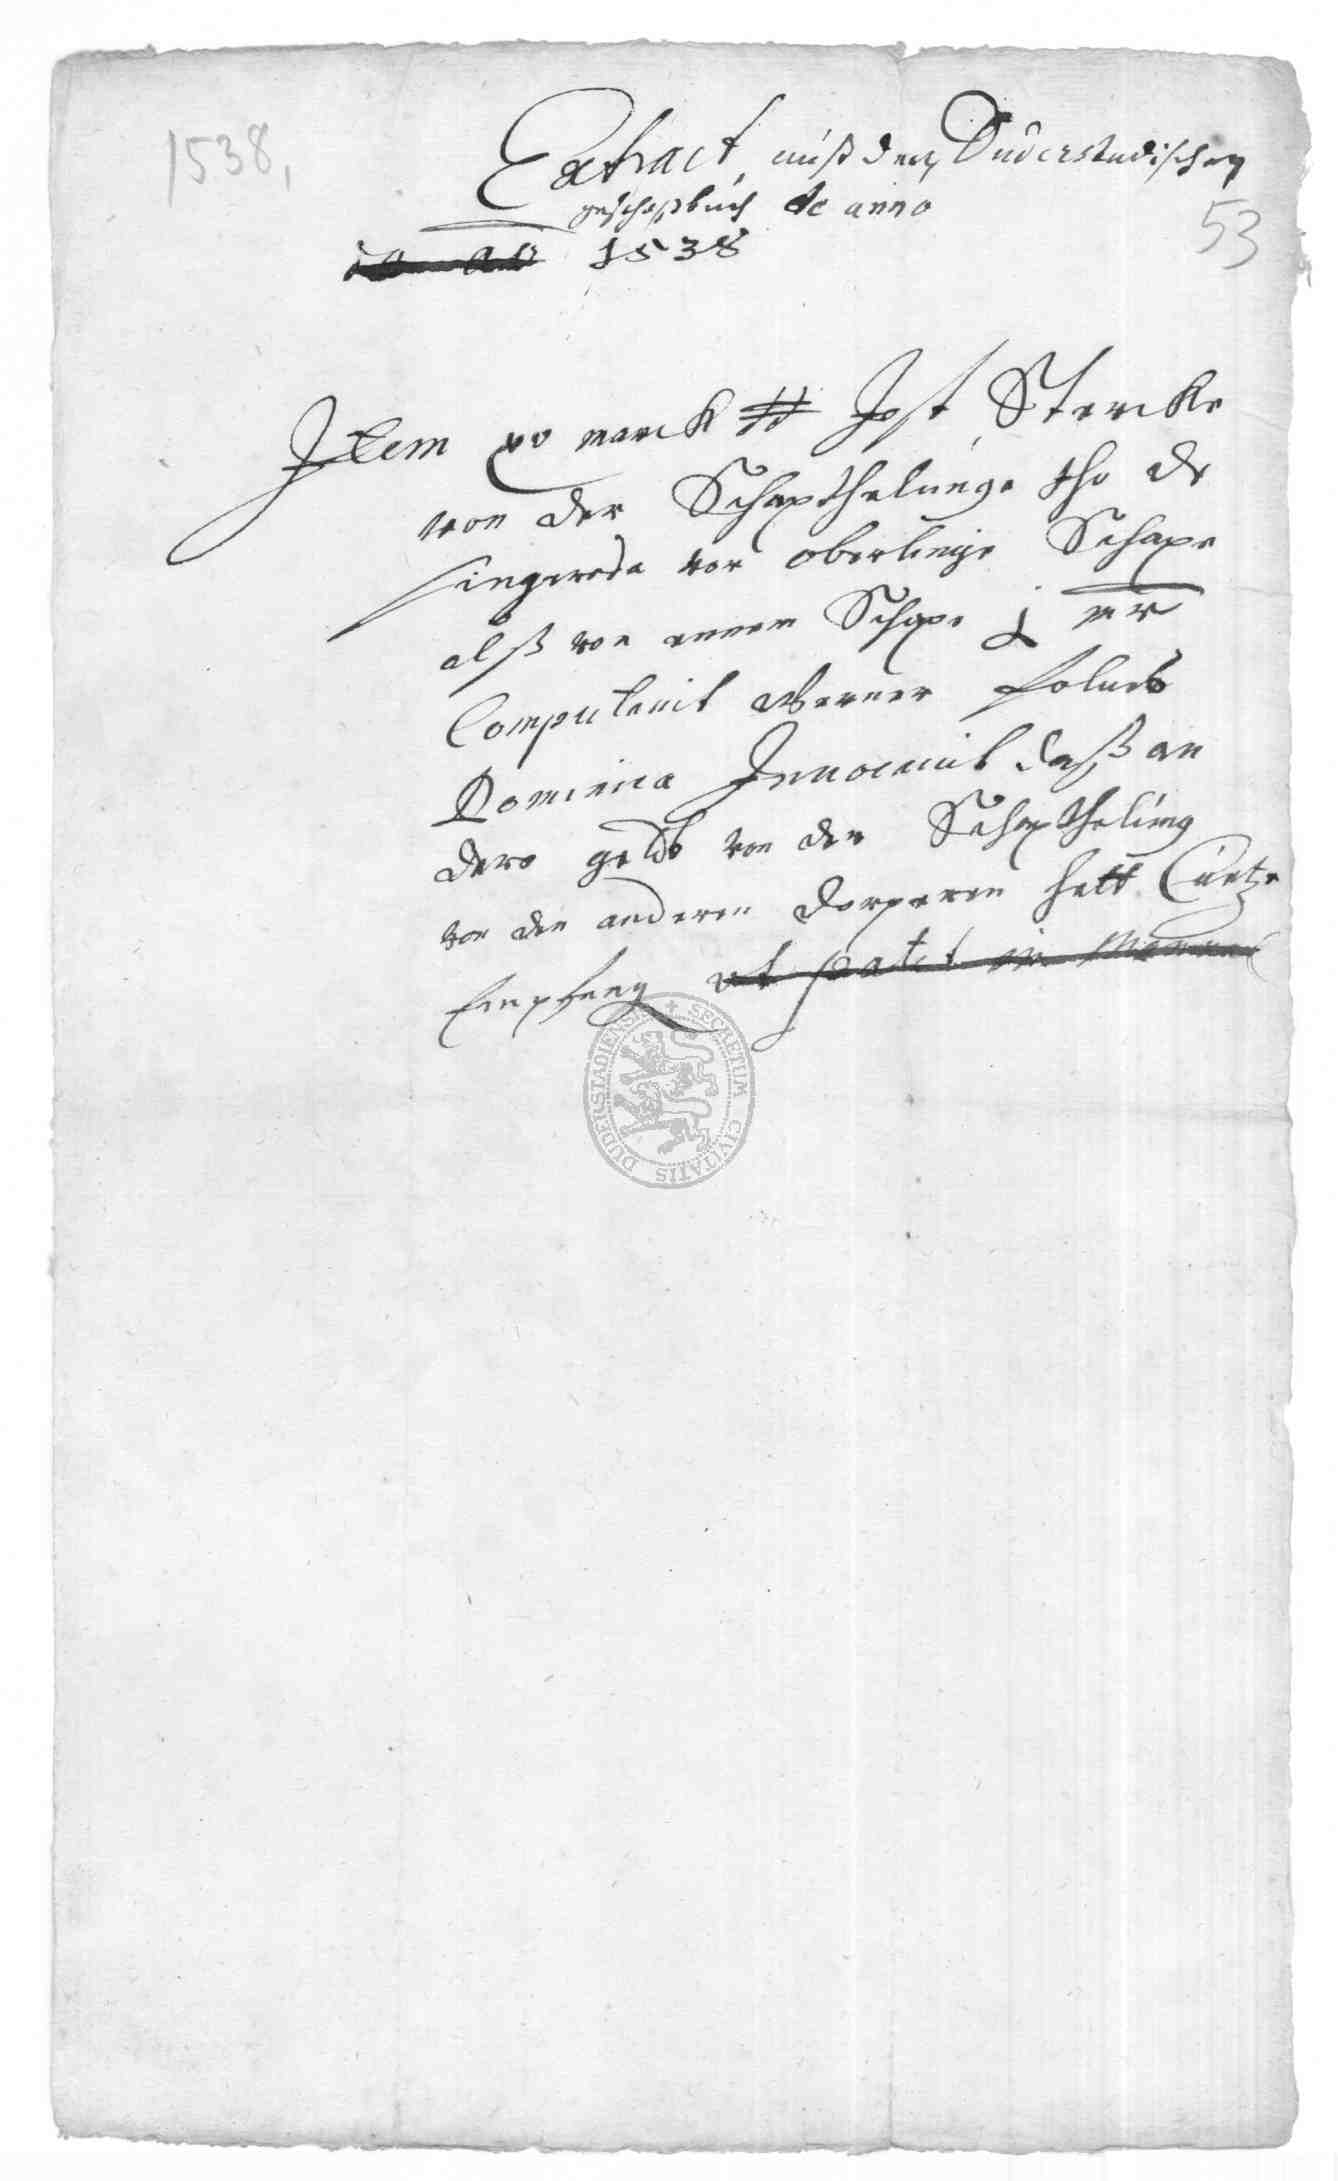 1538,
Extract auß dem Duderstadischen
geschoßbuch de anno
1538
53
Item xv marck Jost Stercke
von der Schapthelunge tho de
singeroda vor oberlinge Schape
alß von einem Schape j
Computavit Werner
Dominica Invocavit daß an
dere geldt von der Schapthelung
von den anderen Dorperen hatt Curtze
Empfang ut patet in
SECRETUM CIVITATIS DUDERSTADIENSIS